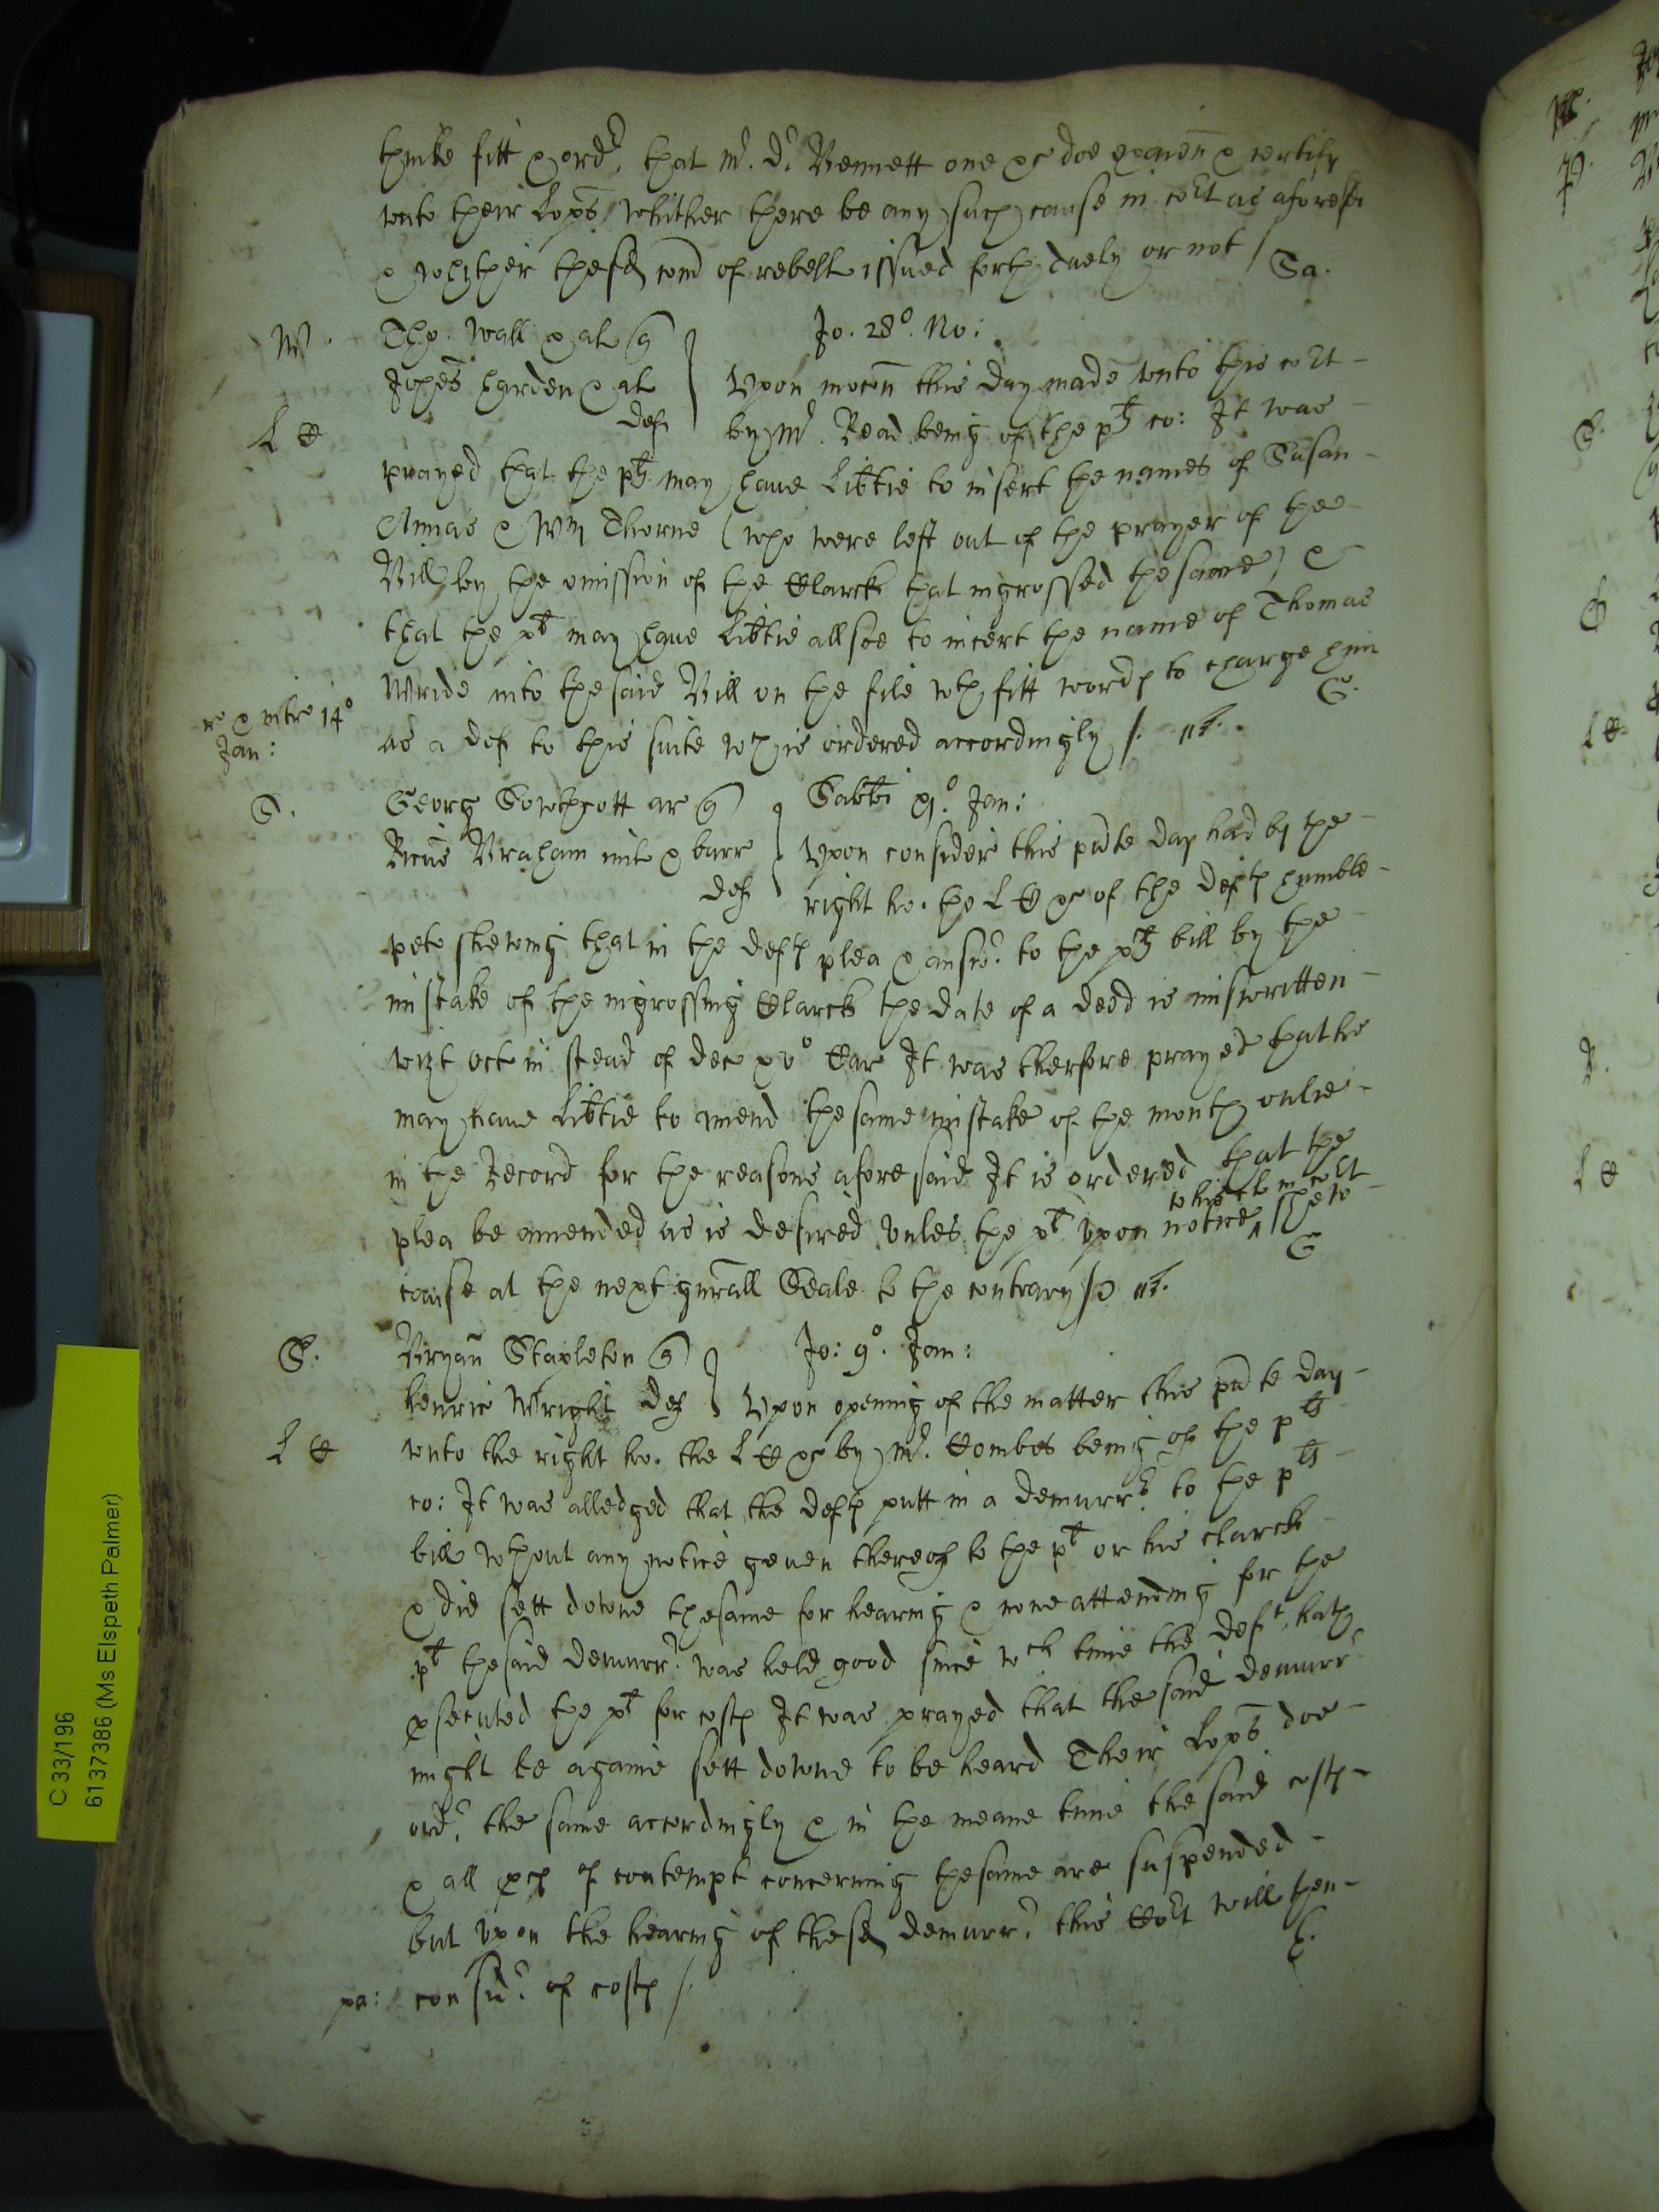 thinke fitt & ordr. that mr. dr. Bennett one &c doe examen & certify
unto their Lops. whither there be any such cause in cort as aforesd
& whither thesd com of rebell issued forth duely or not / Sa.
W. Tho. Wall & al q
Jo. 28o. No:
Johes harden & al
def
Upon mocon this day made unto this cort
L C by mr. Read being of the plts co: It was
prayed that the plts may have libtie to insert the names of Susan
Annas & Wm Thorne (who were left out of the prayer of the
Bill by the omission of the Clarck that ingrossed the same) &
that the plt may have libtie allsoe to incert the name of Thomas
Wride into the said Bill on the file wth fitt words to charge him
G.
ro & intr 14o
Jan:
as a def to this suite wch is ordered accordingly /.
S. Georg Sowthcott ar q
Sabbi Jan:
Ricus Braham mil & barr
def
Upon consider this pnte day had by the
right ho. the L C &c of the defts humble
peto shewing that in the defts plea & answr. to the plts bill by the
mistake of the ingrossing Clarck the date of a deed is miswritten
vizt octo in stead of dec xvo Car It was therfore prayed that he
may have libtie to amend the same mistake of the month onlie
in the Record for the reasons aforesaid It is ordered that the
plea be amended as is desired unles the plt upon notice ^ to his clk in cort shew
G
cause at the next gnrall Seale to the contrary /
S. Bryan Stapleton q
Jo: 9o. Jan:
henric Wright def Upon opening of the matter this pnte day
L C unto the right ho. the L C &c by mr. Combes being of the plts
co: It was alledged that the defts putt in a demurrr to the plts
bill wthout any notice geven thereof to the plt or his clarck
& did sett downe the same for hearing & none attending for the
plt the said demurrr. was held good since wch time the deft hath
psecuted the plt for costs It was prayed that the said demurrr
might be againe sett downe to be heard Their Lops doe
ordr. the same accordingly & in the meane time the said costs
& all pcs of contempt concerning the same are suspended
but upon the hearing of thesd demurrr. this Cort will then
pa: considr. of costs /.
C 33/196
6137386 (Ms Elspeth Palmer)